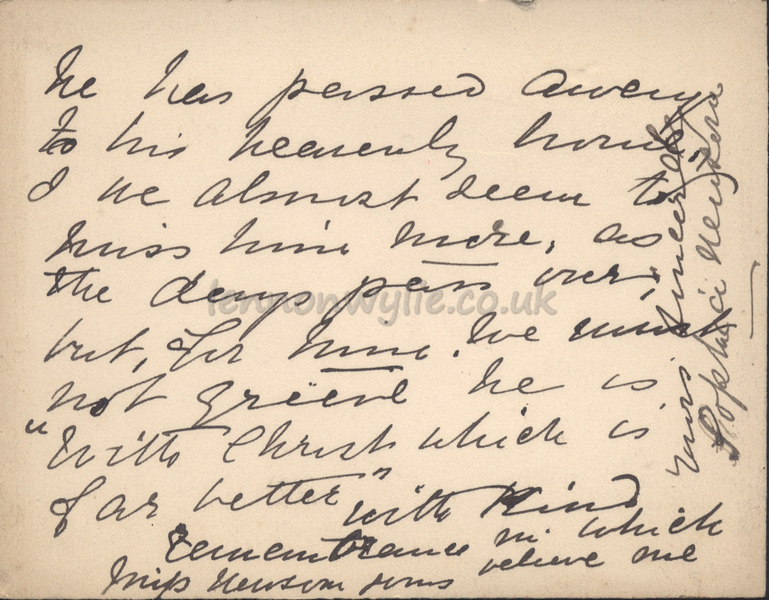 he has passed away
to his heavenly home,
& we almost seem to
miss him more, as
the days pass over,
but, for him. We must
not grieve he is
"With Christ which is
far better" with Kind
remembrance in which
Miss Newsom joins believe me
yours sincerely
Sophia Newsom
lennonwylie.co.uk